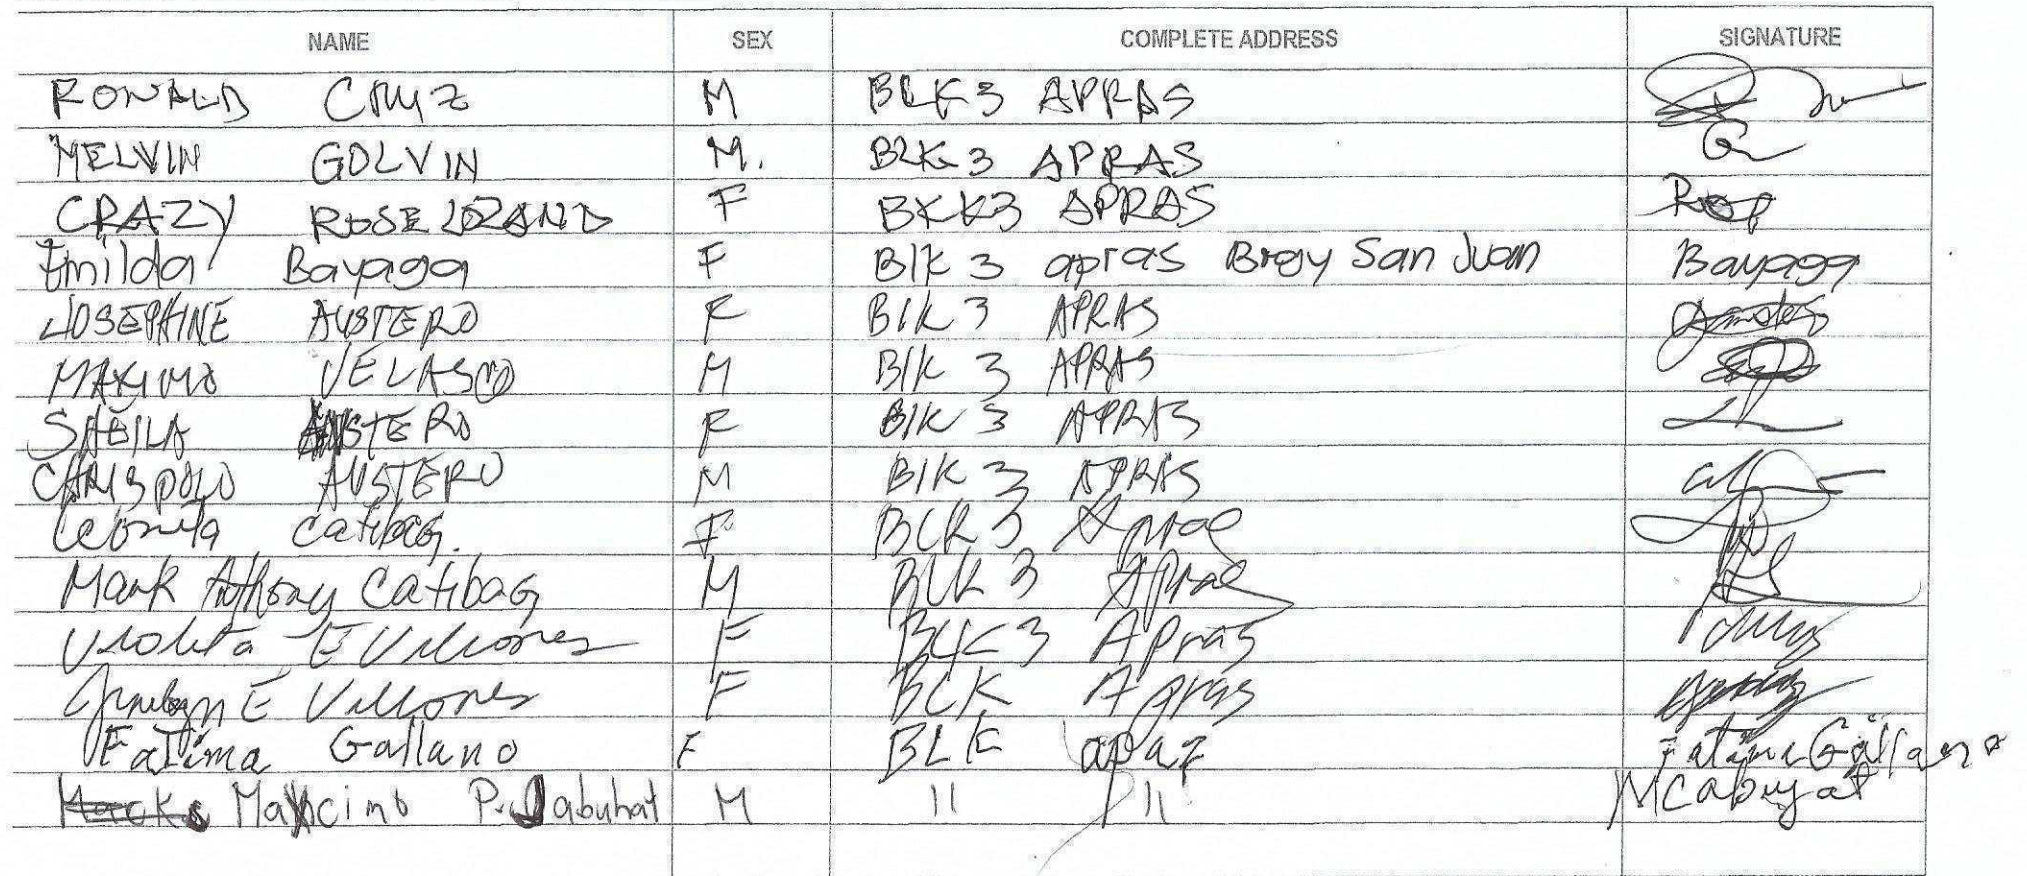 NAME SEX COMPLETE ADDRESS SIGNATURE
RONALD CRUZ M BLK3 APRAS
MELVIN GOLVIN M. BLK 3 APRAS
CRAZY ROSE LOZAND F BKK3 APRAS
Emilda Bayaga F Blk 3 apras Brgy San Juan Bayaga
JOSEPHINE AUSTERO F Blk 3 APRAS
MAXIMO VELASCO M Blk 3 APRAS
AUSTERO F Blk 3 APRAS
AUSTERO M Blk 3 APRAS
Catibag. F BLK 3
Mark Athony Catibag M BLK 3
Violeta E Villiones F BLK 3 Apras
E Villones F BLK Apras
Fatima Gallano F BLK apaz Fatima Gallano
P. M 11 11